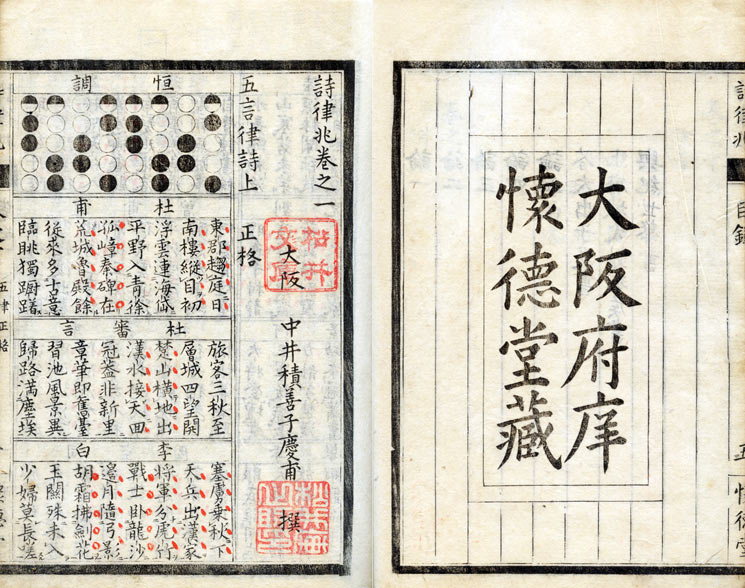 詩律兆
目錄
五
大阪府庠
懷德堂藏
詩律兆卷之一
大阪 中井積善子慶甫 撰
五言律詩上 正格
恒調
杜甫
東郡趨庭日
南樓縱目初
浮雲連海岱
平野入青徐
孤嶂秦碑在
荒城魯殿餘
從來多古意
臨眺獨躊躇
杜審言
旅客三秋至
層城四望開
楚山橫地出
漢水接天回
冠蓋非新里
章華即舊臺
習池風景異
歸路滿塵埃
李白
塞虜乘秋下
天兵出漢家
將軍分虎竹
戰士臥龍沙
邊月隨弓影
胡霜拂劍花
玉關殊未入
少婦莫長嗟
五律正格